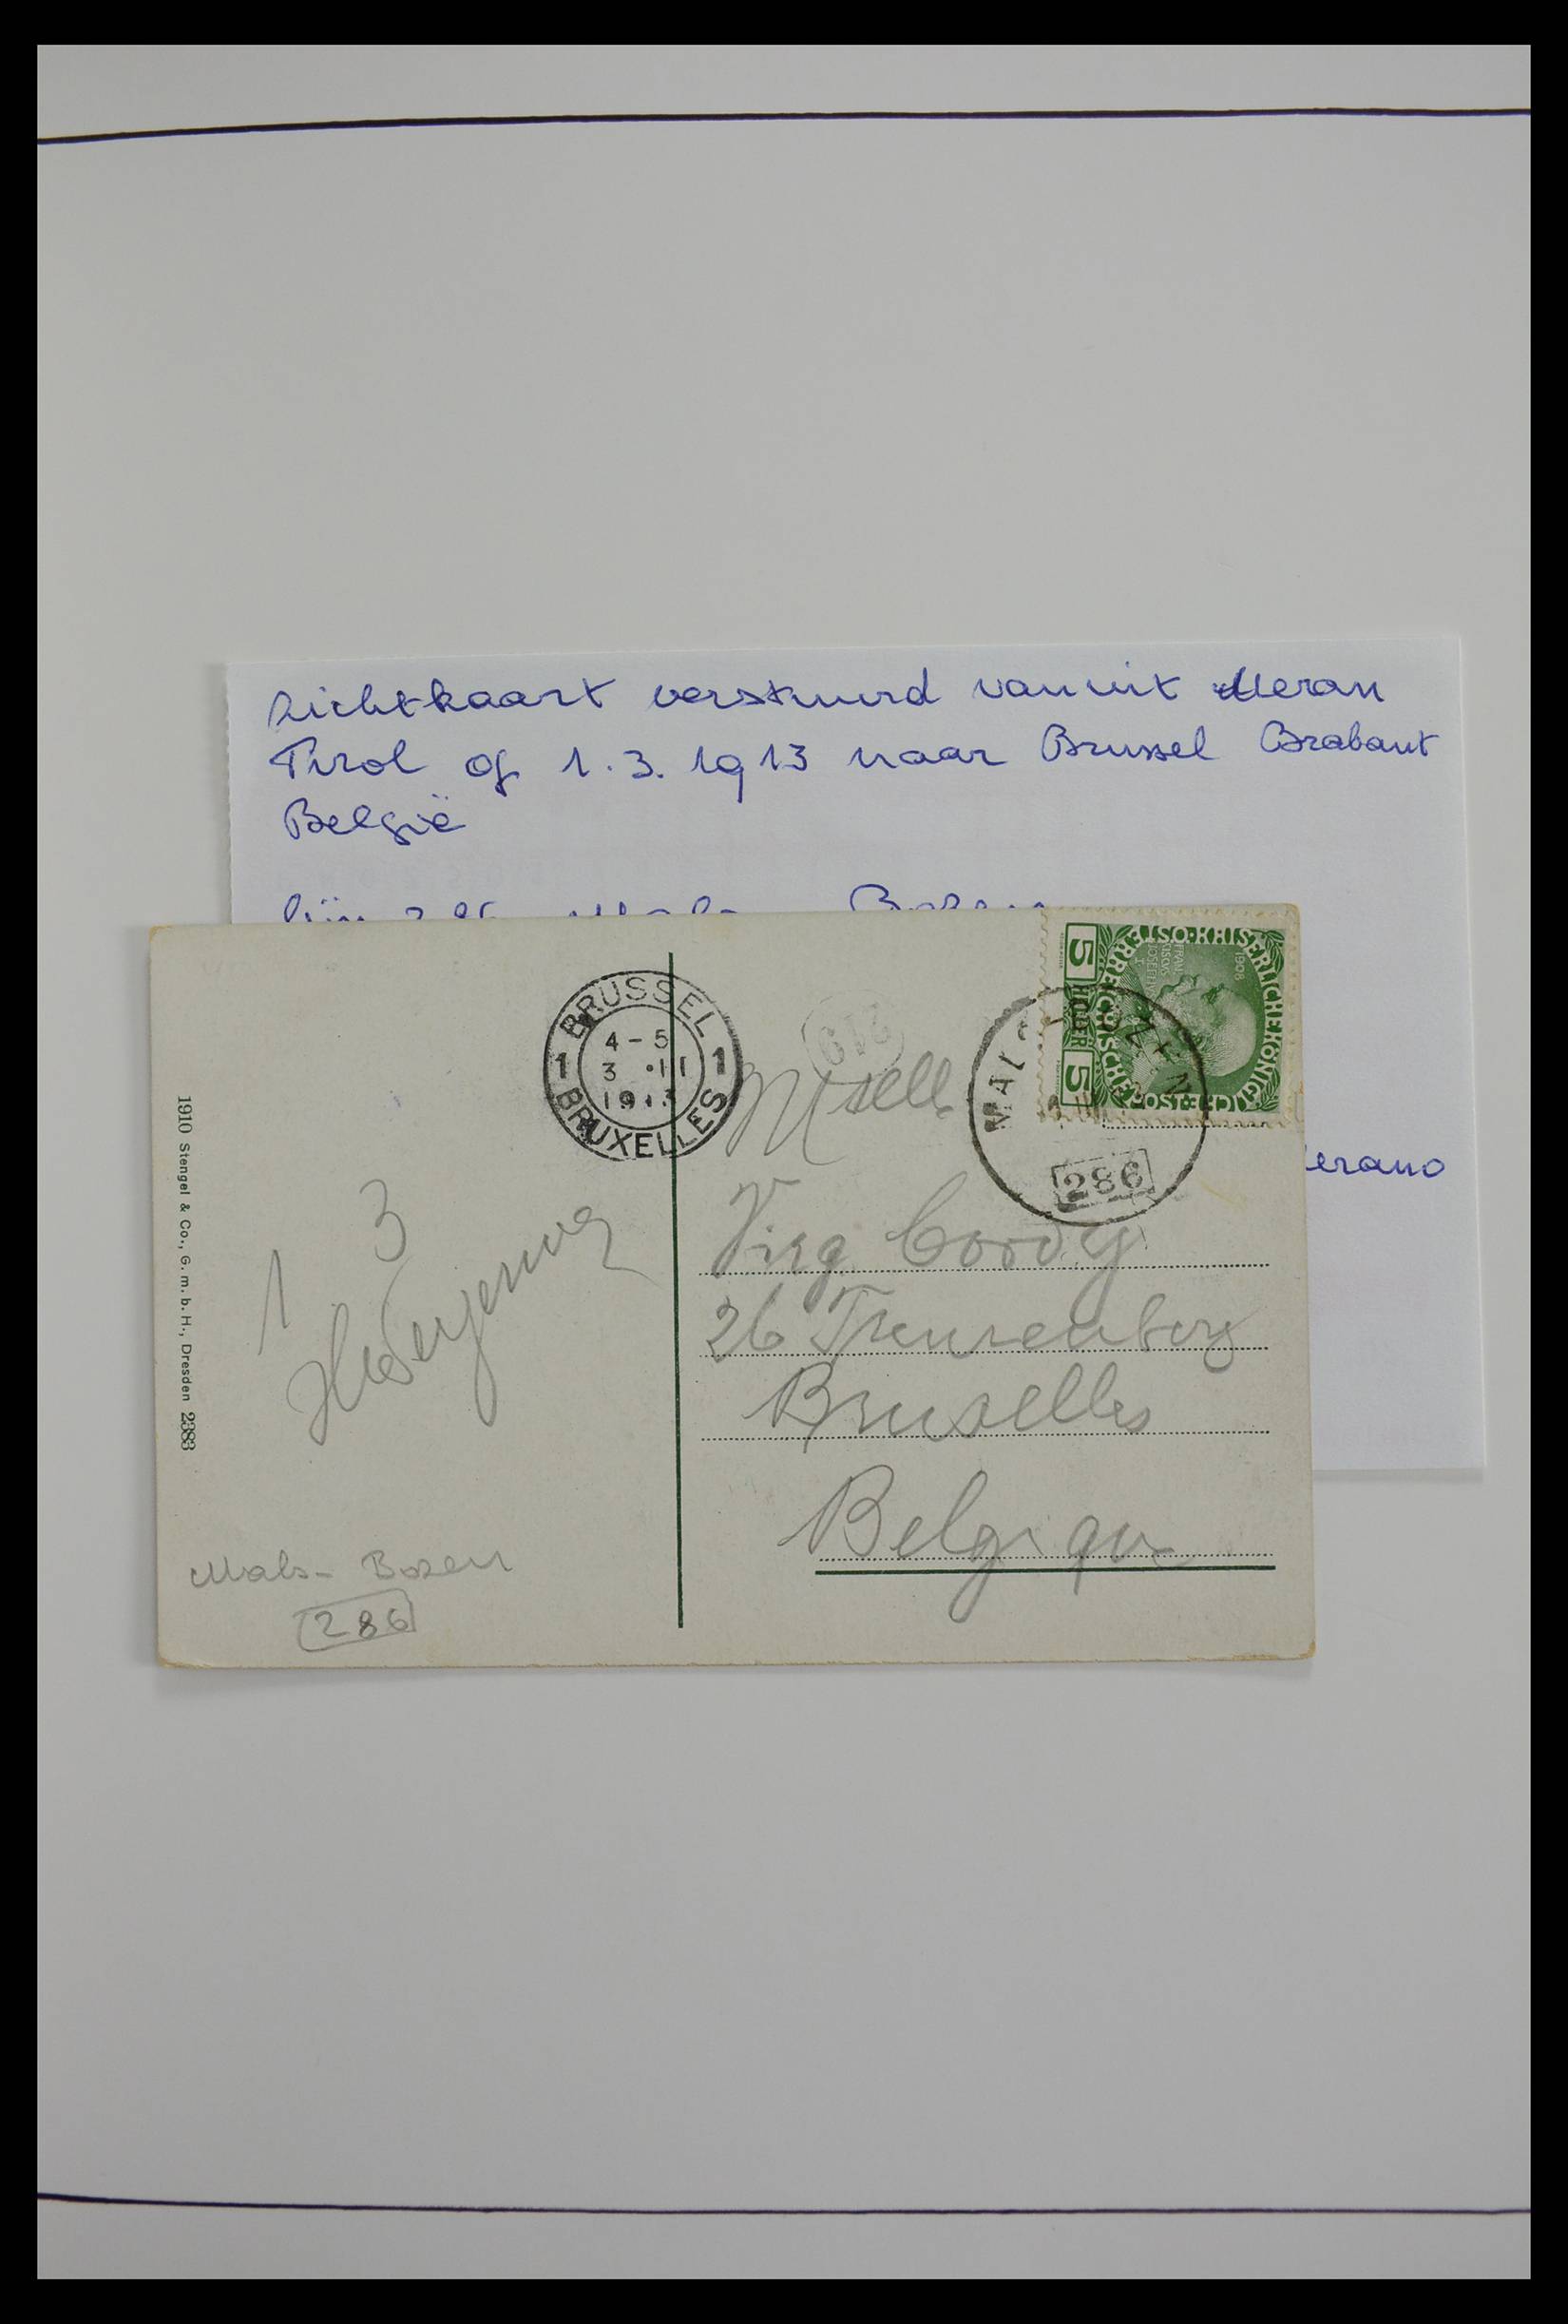 Zichtkaart verstuurd vanuit Meran
Tirol op 1.3.1913 naar Brussel Brabant
België
lijn 286 Mals - Bozen
erano
BRUSSEL
4-5
3 ·III
1913
1 1
BRUXELLES
219
MALS BOZEN
286
KAISERLICHE KÖNIGLICHE ÖSTERREICHISCHE POST
1908
FRANCISCUS JOSEPH I
5 HELLER 5
Mselle
Virg
26 Treurenberg
Bruxelles
Belgique
1 3
1910 Stengel & Co., G. m. b. H., Dresden 2383
Mals - Bozen
286